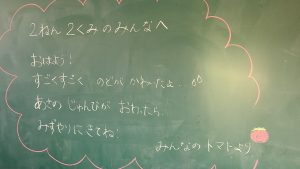 2ねん 2くみのみんなへ
おはよう!
すごくすごく のどが かわいたよ...
あさの じゅんびが おわったら
みずやりにきてね!
みんなのトマトより